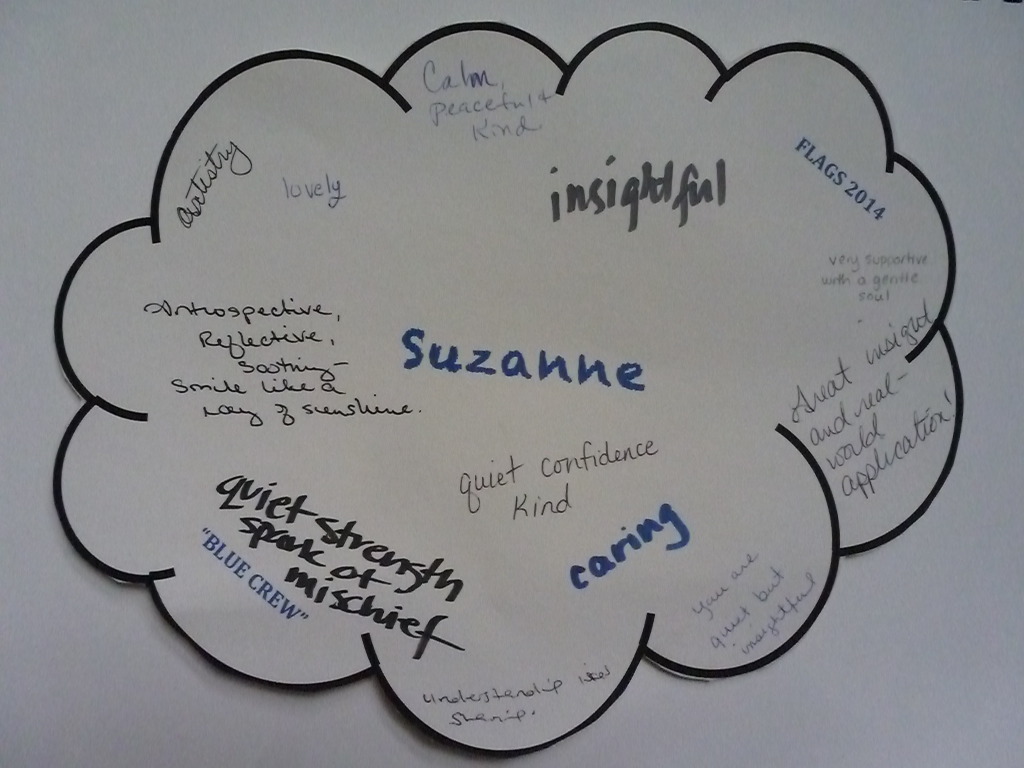 Calm,
peaceful +
kind
artistry
lovely
insightful
FLAGS 2014
very supportive
with a gentle
soul
Introspective,
Reflective,
Soothing-
Smile like a
ray of sunshine.
Suzanne
Great insight
and real-
world
application!
quiet confidence
kind
quiet strength
spark of
mischief
"BLUE CREW"
caring
you are
quiet but
insightful